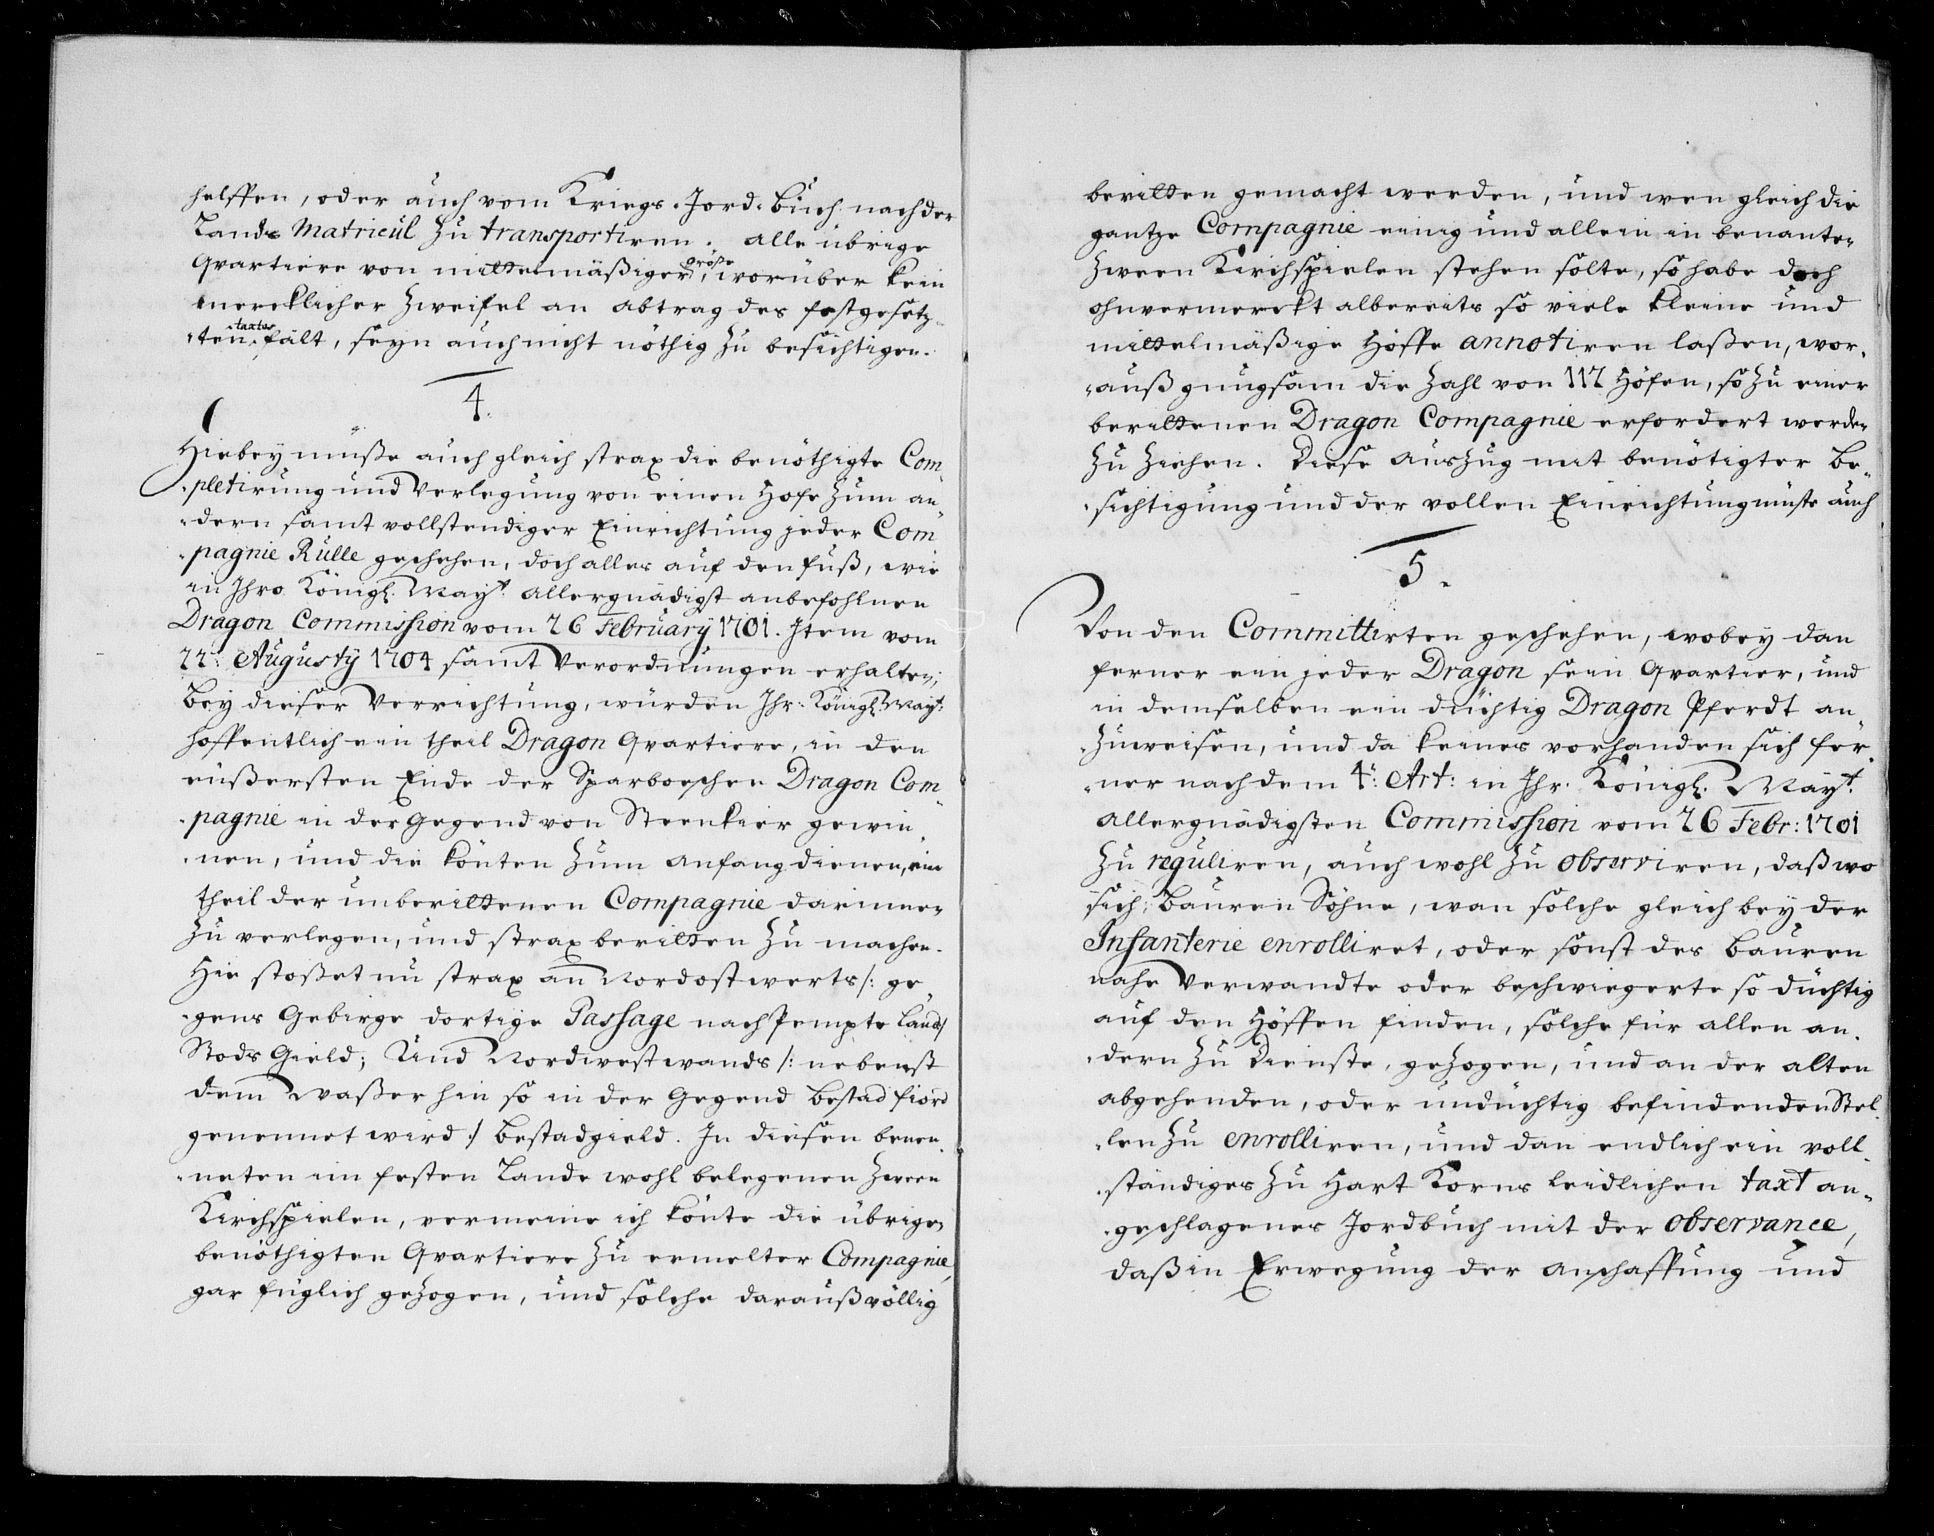 helffen, oder auch vom Kriegs-Jord-Buch nach der
Lands Matricul zu transportiren. alle übrige
Qvartiere von mittelmäßiger größe, worüber kein
mercklicher Zweifel an abtrag des festgesetz-
-ten taxtes fält, seyn auch nicht nöthig zu besichtigen.
4.
Hiebey müße auch gleich strax die benöthigte Com
-pletirung und Verlegung von einen Hofe zum an
-dern samt vollstendiger Einrichtung jeder Com
-pagnie Rulle geschehen, doch alles auf den fuß, wie
in Ihro Königl. Mayt. allergnädigst anbefohlnen
Dragon Commission vom 26 February 1701. Item vom
22: Augusty 1704 samt Verordnungen erhalten;
Bey dieser Verrichtung, würden Ihr: Königl. Mayt:
hoffentlich ein theil Dragon Qvartiere, in den
eüßersten Ende der Sparboeschen Dragon Com
-pagnie in der Gegend von Steenkier gewin
-nen, und die könten zum anfang dienen, ein
theil der unberittenen Compagnie darinnen
zu verlegen, und strax beritten zu machen.
Hie stoßet nu strax an Nordostwerts /: ge
-gens Gebirge dortige Passage nach Jempte land /
Stods Gield; Und Nordwestwands /: nebenst
dem Waßer hin so in der Gegend Bestad fiord
genennet wird :/ Bestadgield. In diesen benen
-neten im festen Lande wohl belegenen zween
Kirchspielen, vermeine ich könte die übrigen
benöthigten Qvartiere zu ermelter Compagnie,
gar füglich gezogen, und solche darauß völlig
beritten gemacht werden, und wen gleich die
gantze Compagnie einig und allein in benanten
zween Kirchspielen stehen solte, so habe doch
ohnvermerckt albereits so viele kleine und
mittelmäßige Höffe annotiren laßen, wor-
-auß gnugsam die Zahl von 117 Höfen, so zu einer
berittenen Dragon Compagnie erfordert werden
zu ziehen. Diese auszug mit benötigter Be-
-sichtigung und der vollen Einrichtung müste auch
5.
Von den Committirten geschehen, wobey dan
ferner ein jeder Dragon sein Qvartier, und
in demselben ein düchtig Dragon Pferdt an
-zuweisen, und da keines vorhanden sich fer
-ner nach dem 4: Art: in Ihr. Königl. Mayt.
allergnädigsten Commission vom 26 Febr: 1701
zu reguliren, auch wohl zu observiren, daß wo
sich Bauren Söhne, wan solche gleich bey der
Infanterie enrolliret, oder sonst des Bauren
nahe Verwandte oder beschwiegerte so düchtig
auf den Höffen finden, solche für allen an-
-dern zu Dienste gezogen, und an der alten
abgehenden, oder undüchtig befindenden Stel
-len zu enrolliren, und dan endlich ein voll-
-ständiges zu Hart Korns leidlichen taxt an-
-geschlagenes Jordbuch mit der observance,
daß in Erwegung der anschaffung und